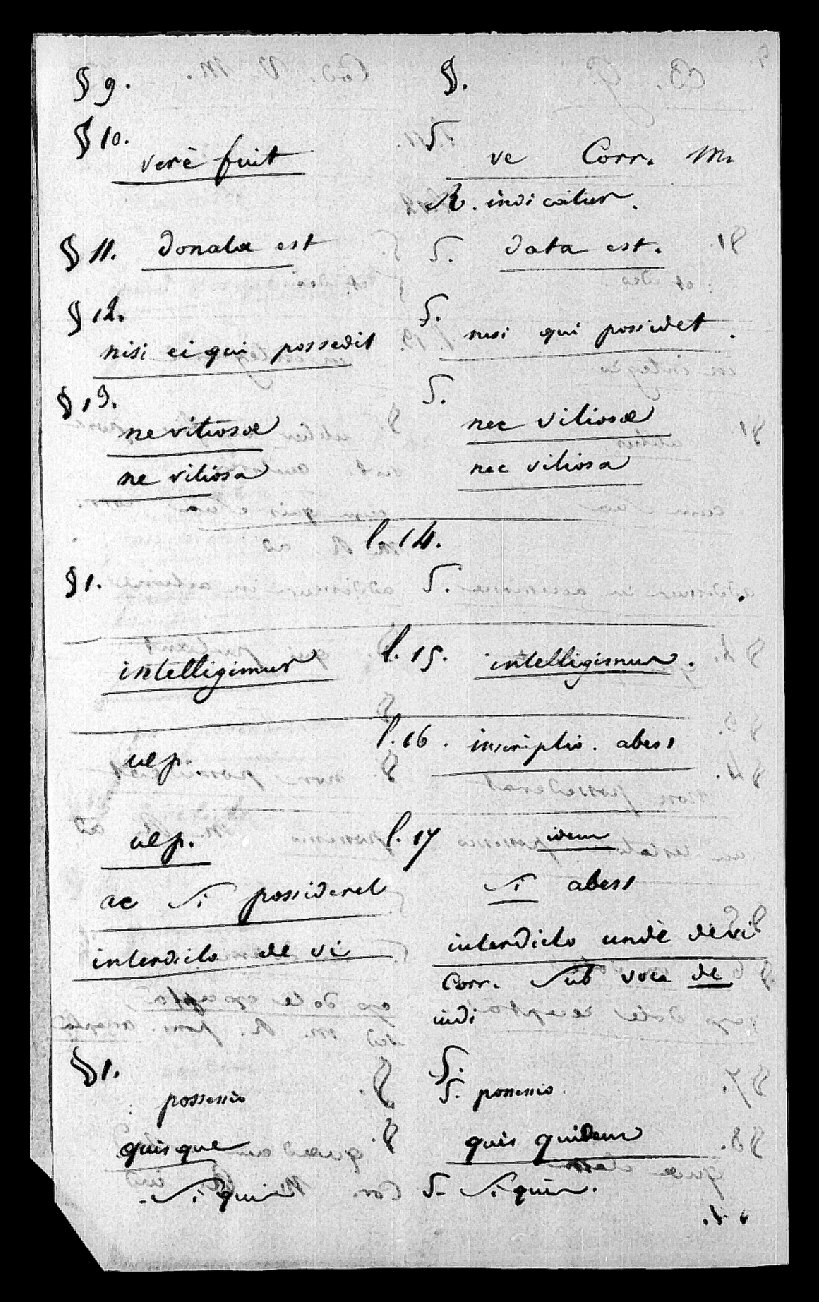 § 9. §.
§ 10. §.
verè fuit ve Corr. M.
R. indicatur.
§ 11. donata est §. data est.
§ 12. §.
nisi ei qui possedit nisi qui possidet.
§ 13. §.
ne vitiosae nec vitiosae
ne vitiosa nec vitiosa
l. 14.
§ 1. §.
intelligimus l. 15. intelligimus.
ulp. l. 16. inscriptio. abest
ulp. l. 17 idem
ac si possideret si abest
interdicto de vi interdicto undè de vi
Corr. sub voce de
indi
§ 1. §.
possessio §. possessio
quisque quis quidem
si quis §. si quis.